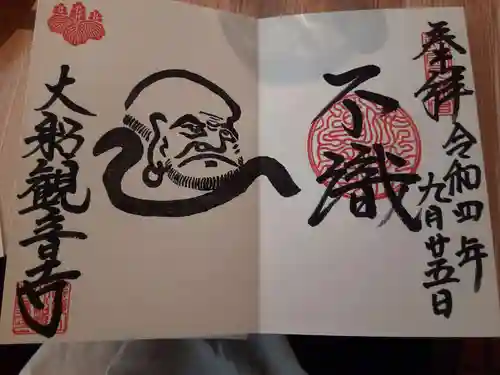 奉拝
令和四年
九月廿五日
不識
大船観音寺